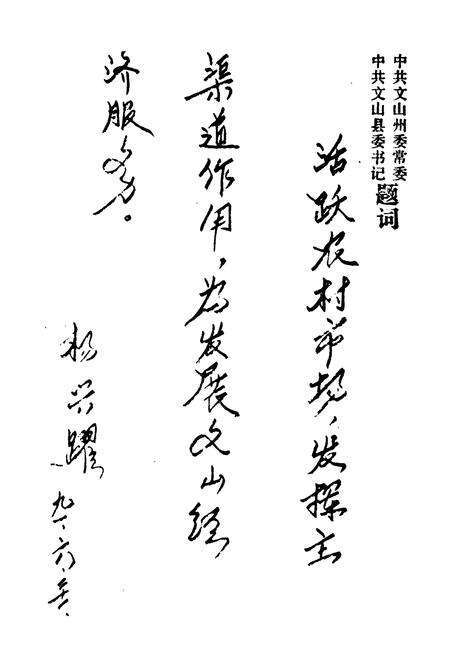 中共文山州委常委
中共文山县委书记
题词
活跃农村市场，发挥主
渠道作用，为发展文山经
济服务。
杨兴躍
九一.六.